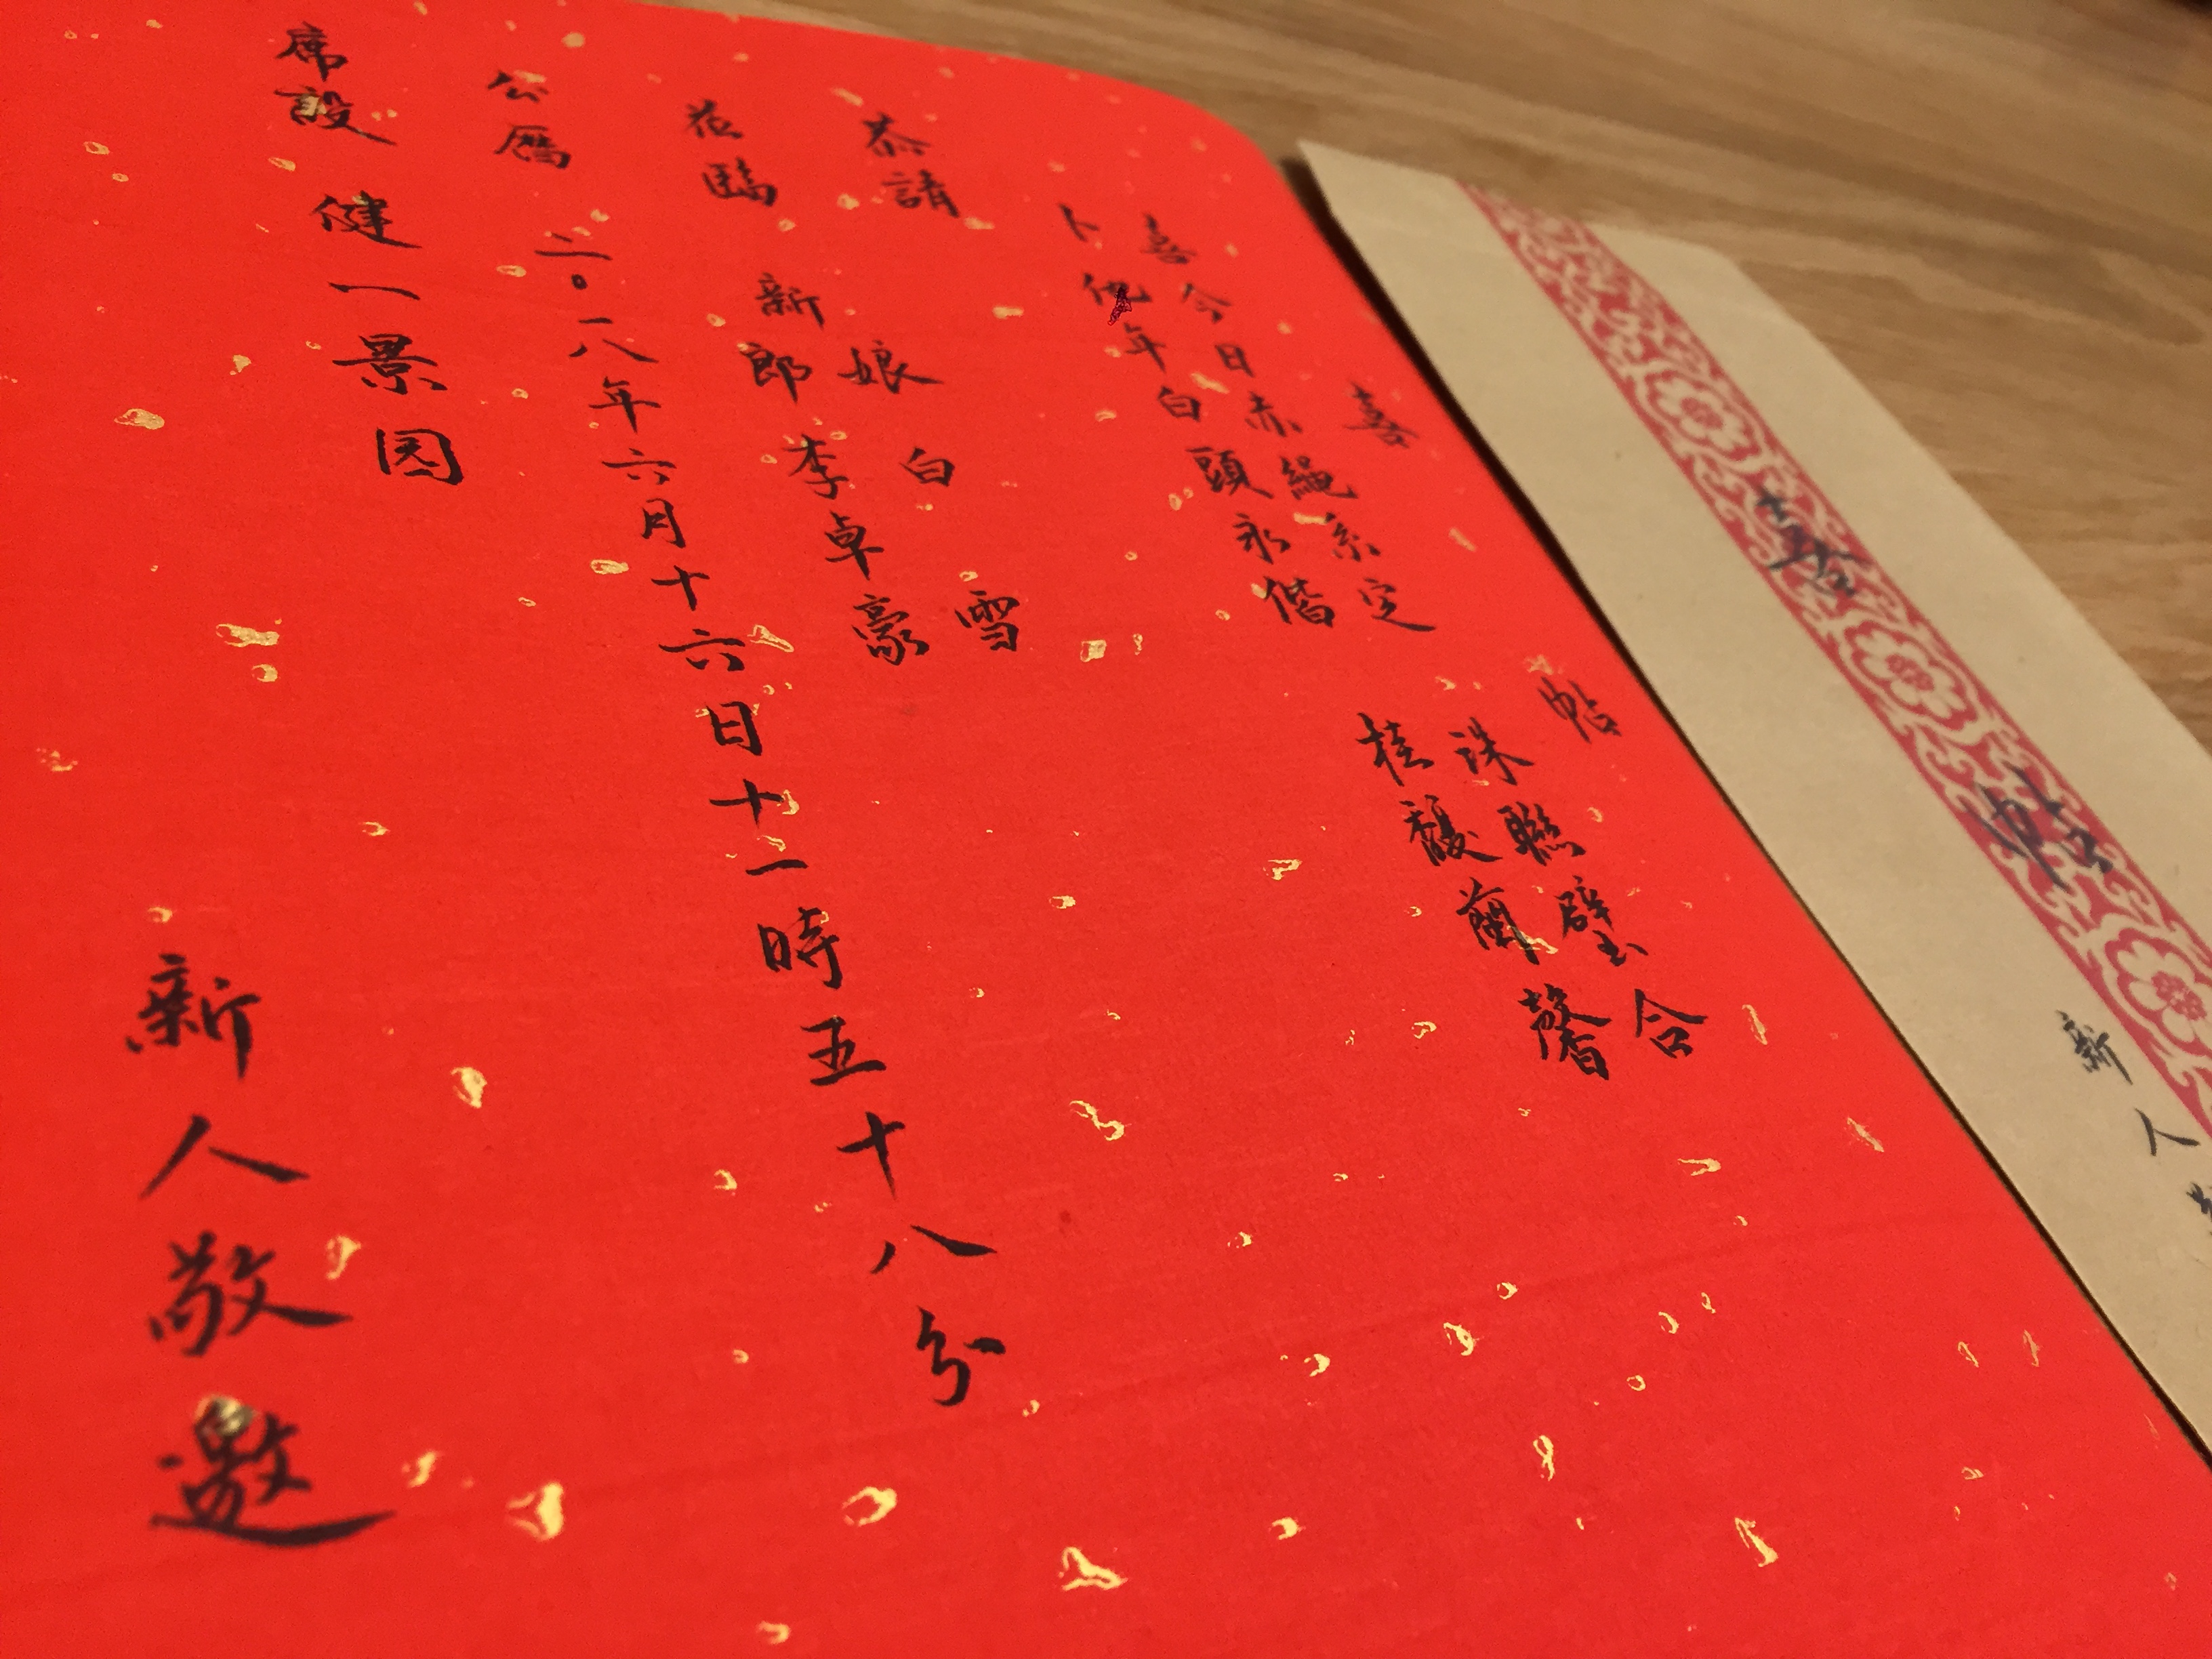 喜帖
喜今日赤繩系定 珠聯璧合
卜他年白頭永偕 桂馥蘭馨
恭請
娘 白雪
新郎 李卓豪
蒞臨
公曆 二〇一八年六月十六日十一時五十八分
席設 健一景园
新人敬邀
喜帖
新人